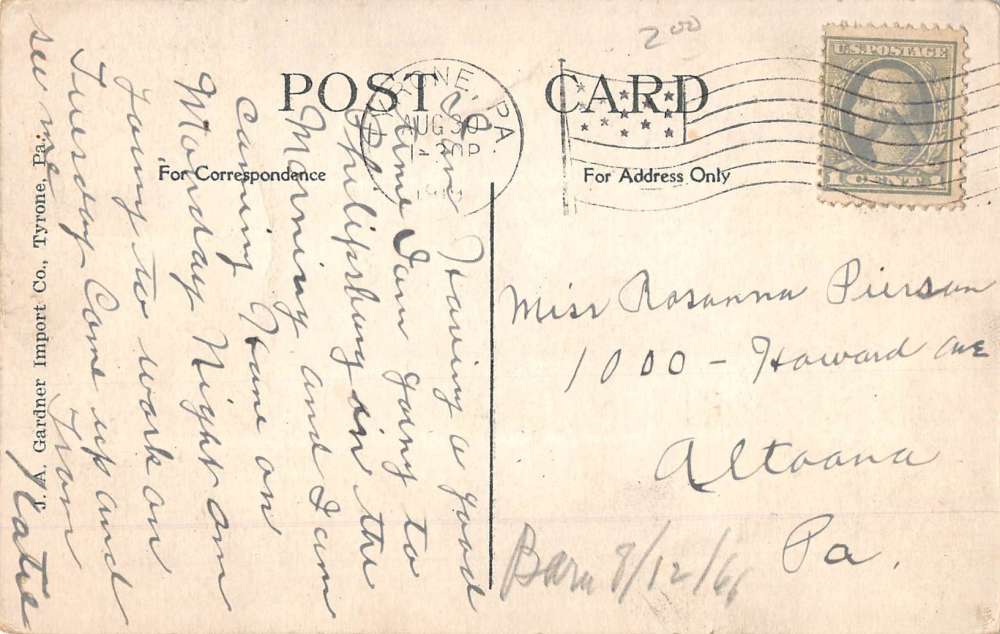 2.00
POST CARD
For Correspondence
For Address Only
TYRONE, PA
AUG 30
U.S. POSTAGE
Am Having a good
time I am going to
Philipsburg in the
Morning and I am
Caming Hame on
Monday Night am
Going to work on
Tuesday Come up and
see me
From
Katie
Miss Rosanna Pierson
1000 - Howard ave
Altoona
Pa.
Barn 8/12/66
J. A. Gardner Import Co., Tyrone, Pa.